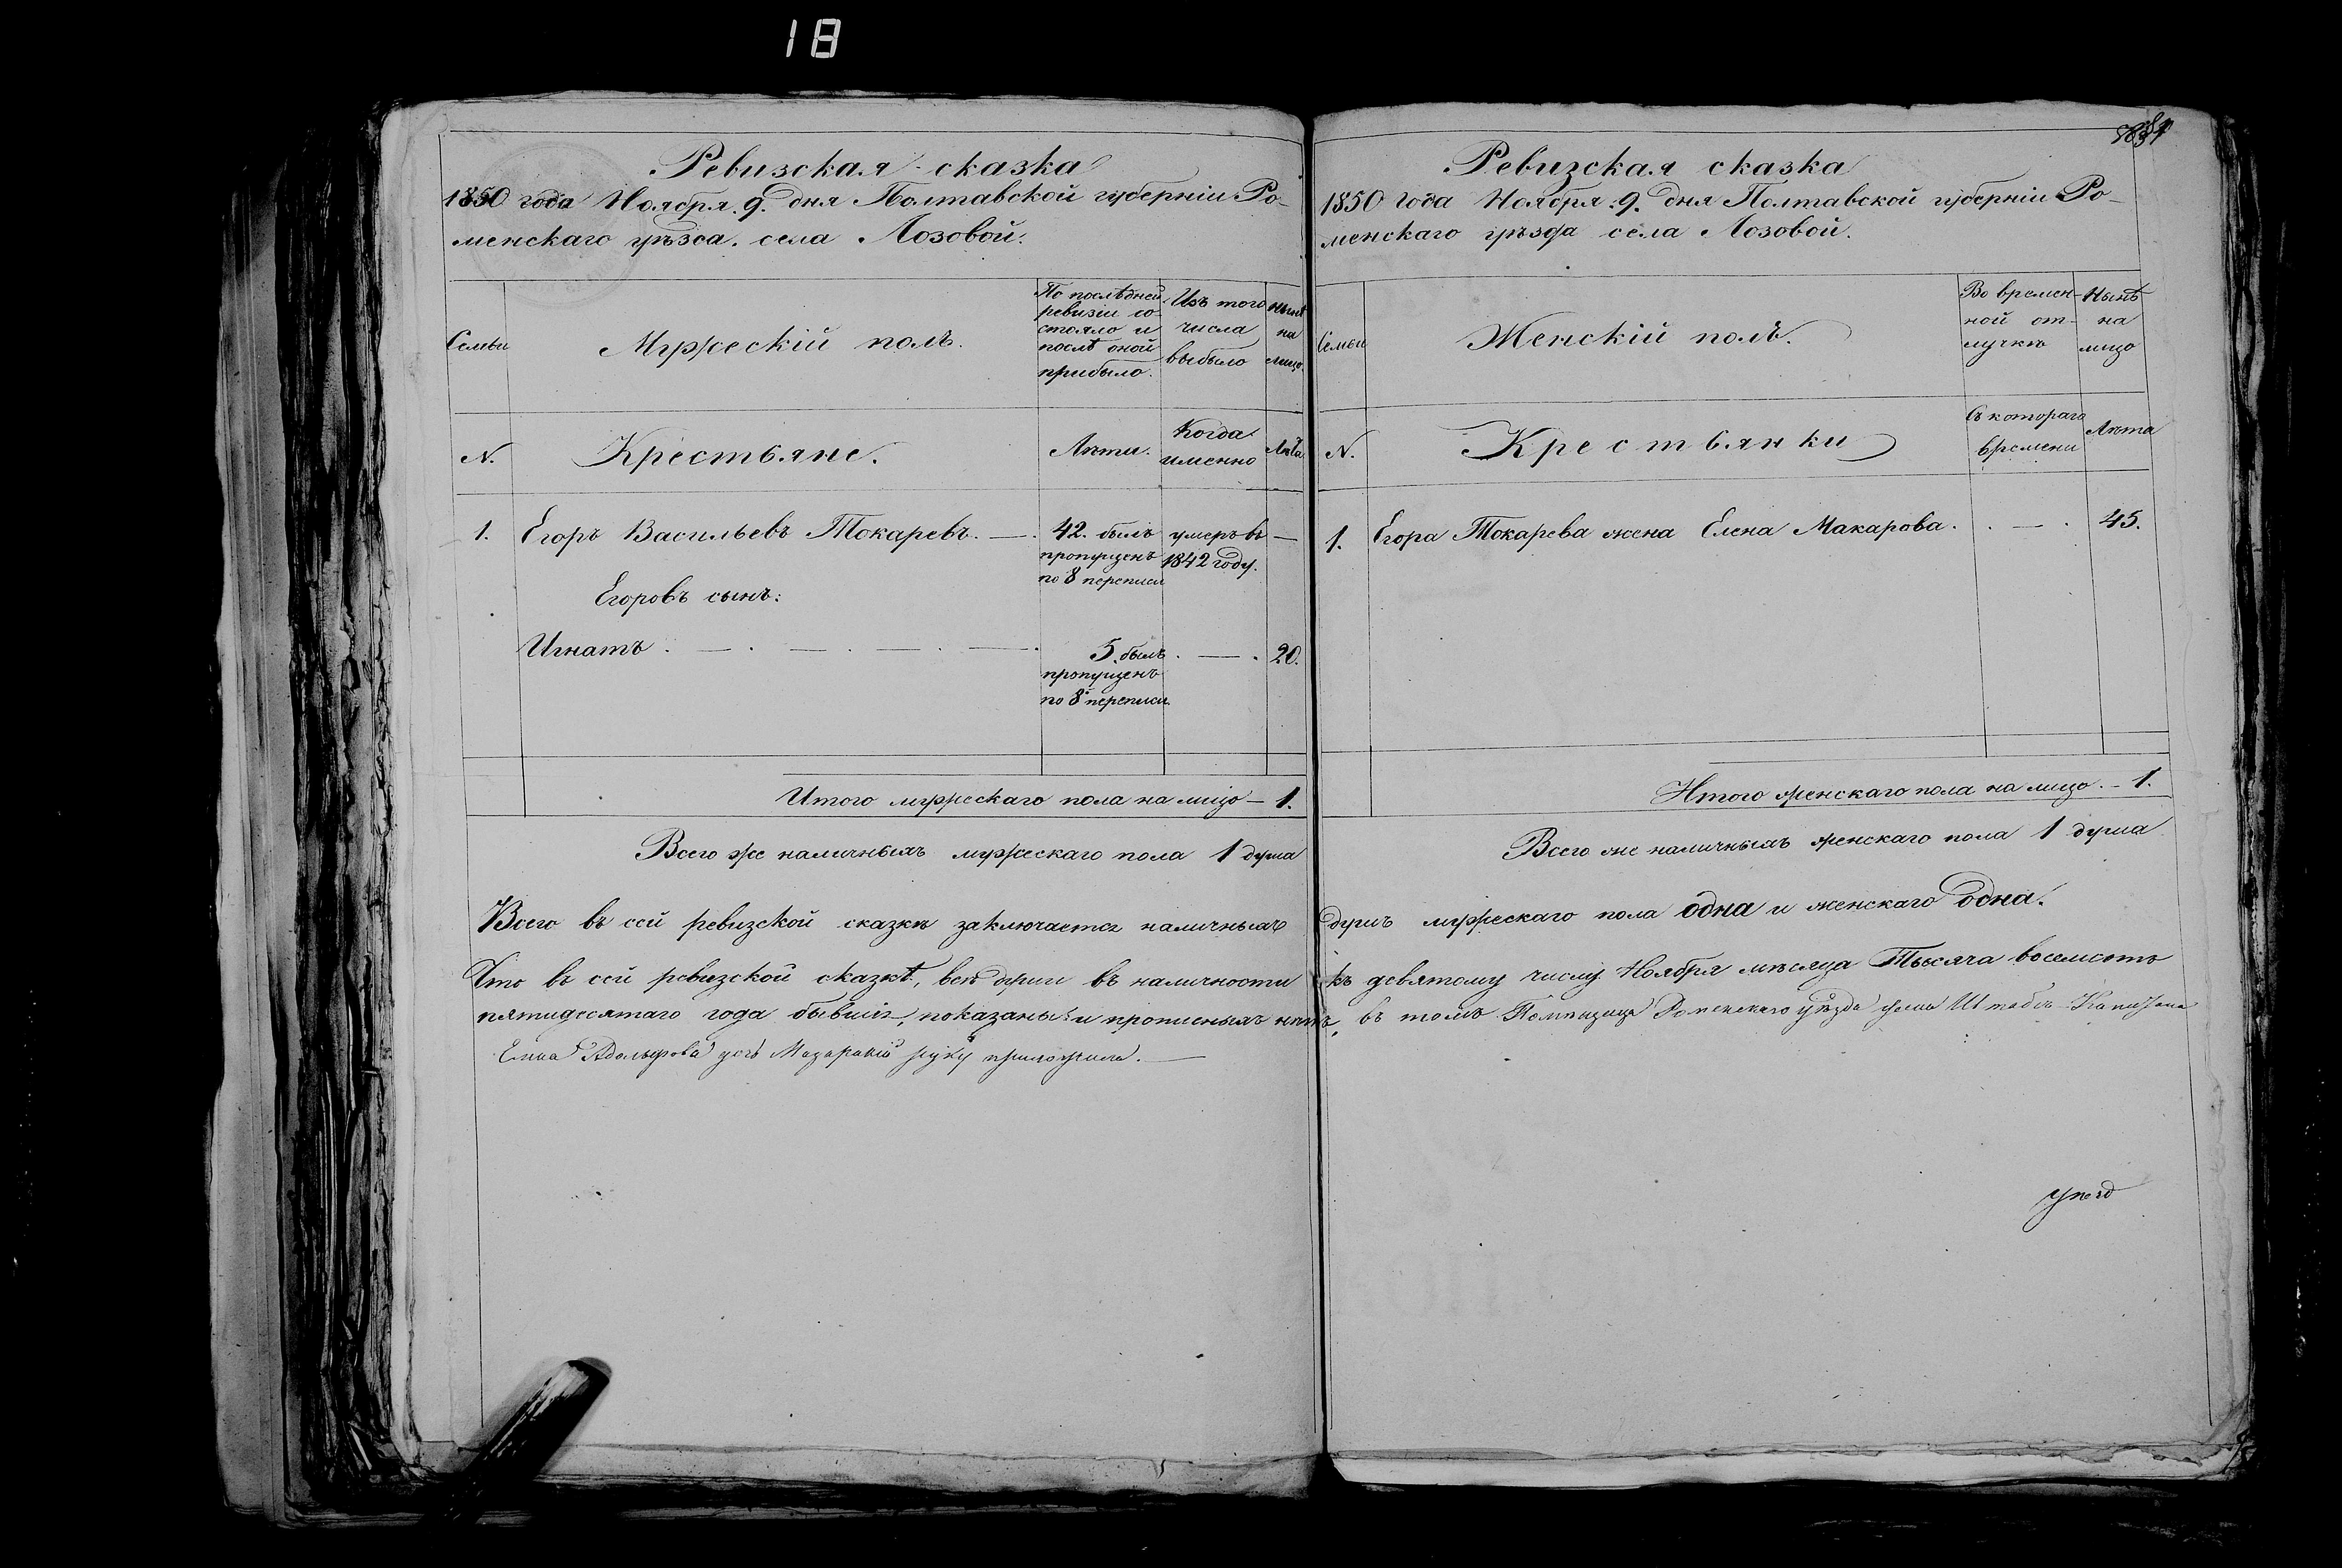 18
Ревизская сказка
1850 года Ноября 9. дня Полтавской губерніи Ро-
менскаго уѣзда. села Лозовой.
Семьи
Мужескій полъ.
По послѣдней
ревизіи со-
стояло и
послѣ оной
прибыло.
Изъ того
числа
выбыло
Нынѣ
на
лицо.
N.
Крестьяне.
Лѣта.
Когда
именно
Лѣта
1. Егоръ Васильевъ Токаревъ. — 42. былъ умеръ въ —
пропущенъ 1842 году.
по 8 переписи
Егоровъ сынъ:
Игнатъ . — . — . — . — . 5. былъ . — . 20.
пропущенъ
по 8 переписи.
Итого мужескаго пола на лицо — 1.
Всего же наличныхъ мужескаго пола 1 душа
Ревизская сказка
1850 года Ноября 9. дня Полтавской губерніи Ро-
менскаго уѣзда села Лозовой.
Семьи
Женскій полъ.
Во времен-
ной от-
лучкѣ
Нынѣ
на
лицо
N.
Крестьянки
Съ котораго
времени
Лѣта
1. Егора Токарева жена Елена Макарова. . — . 45.
Итого женскаго пола на лицо. — 1.
Всего же наличныхъ женскаго пола 1 душа
Всего въ сей ревизской сказкѣ заключается наличныхъ душъ мужескаго пола одна и женскаго одна.
Что въ сей ревизской сказкѣ, всѣ души въ наличности къ девятому числу Ноября мѣсяца Тысяча восемсотъ
пятидесятаго года бывшія, показаны и прописныхъ нѣтъ, въ томъ Помѣщица Роменскаго уѣзда жена Штабсъ-Капитана
Адольфова дочь Мазараки руку приложила. —